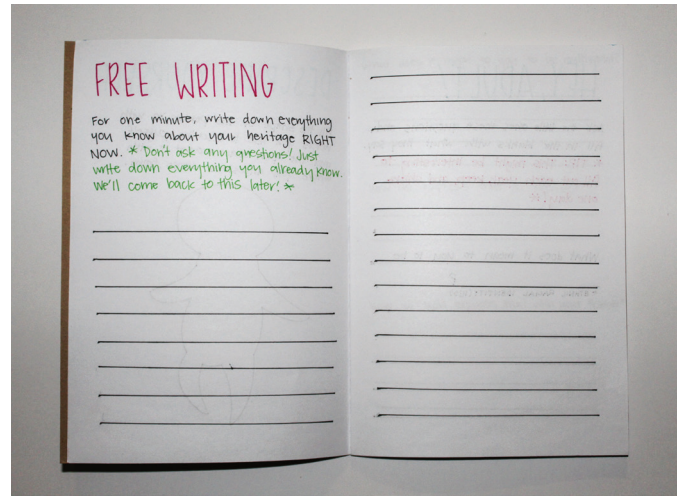 FREE WRITING
For one minute, write down everything
you know about your heritage RIGHT
NOW. * Don't ask any questions! Just
write down everything you already know.
We'll come back to this later! *